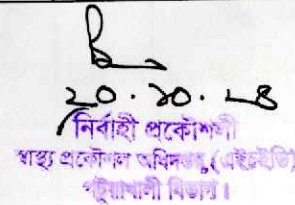 ২০.১০.২৪
নির্বাহী প্রকৌশলী
স্বাস্থ্য প্রকৌশল অধিদপ্তর (এইচইডি)
পটুয়াখালী বিভাগ।